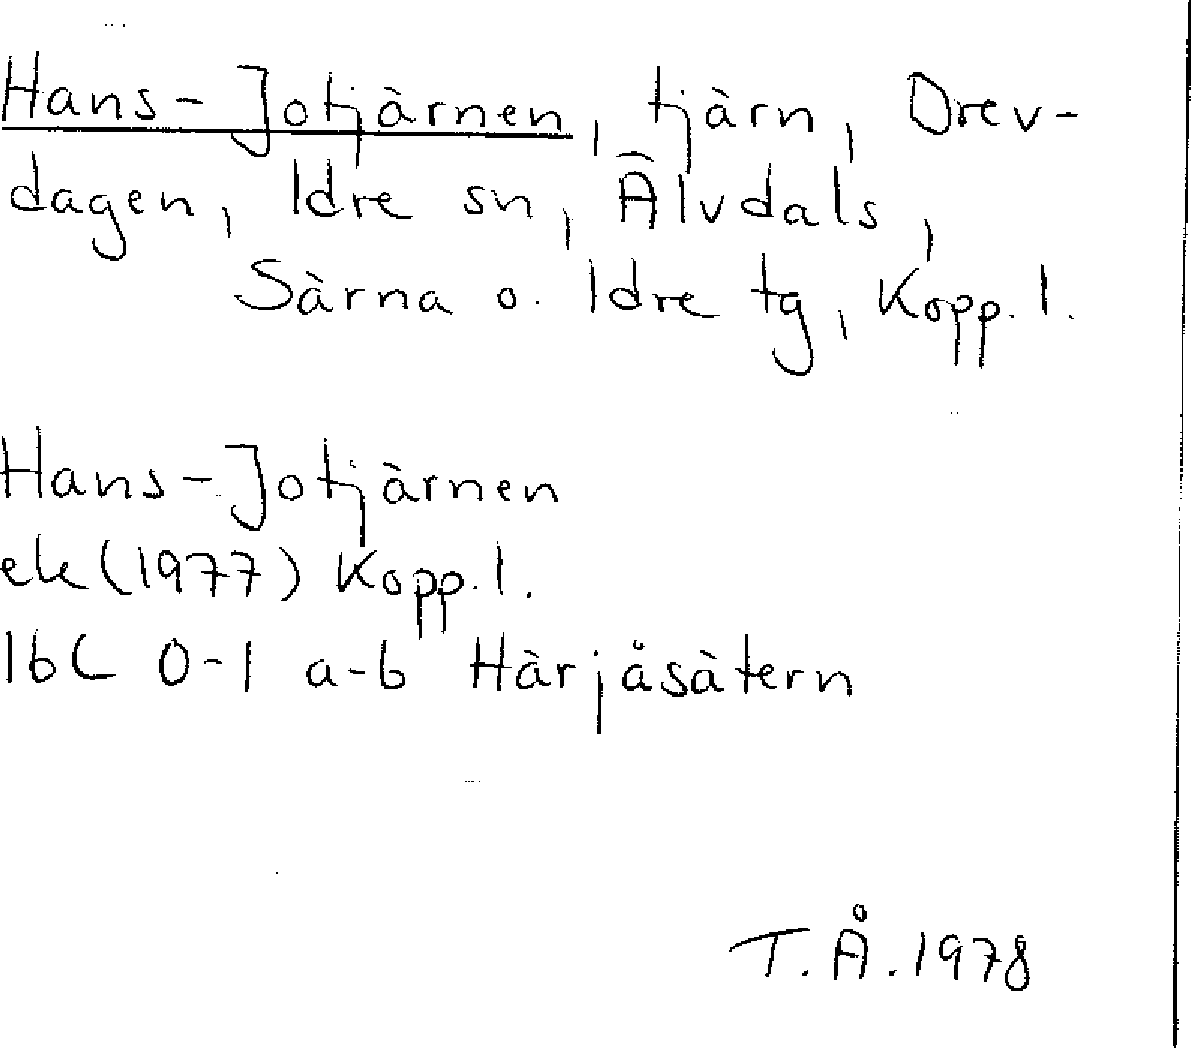 Hans-Jotjärnen, tjärn, Drev-
dagen, Idre sn, Älvdals,
Särna o. Idre tg, Kopp. l.
Hans-Jotjärnen
ek (1977) Kopp. l.
16C 0-1 a-b Härjåsätern
T.Å. 1978